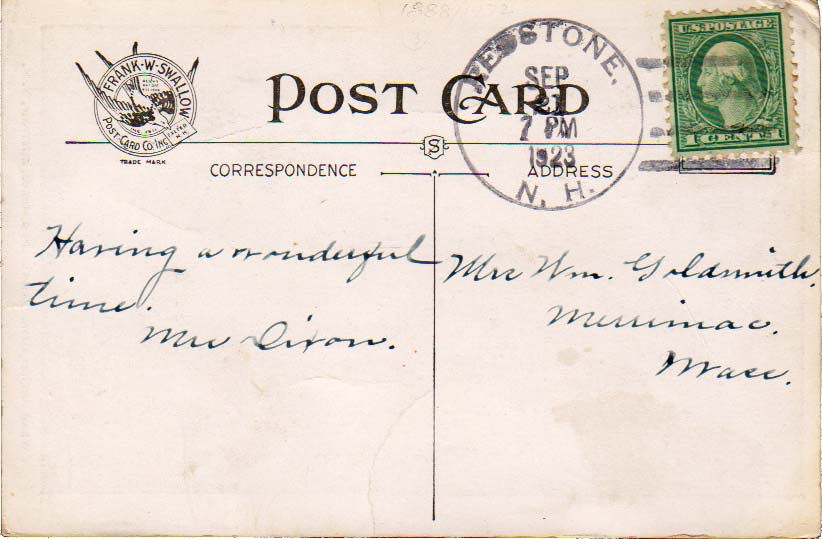 FRANK-W-SWALLOW
POST-CARD CO. INC.
EXETER N.H.
TRADE MARK
POST CARD
REDSTONE,
SEP
21
7 PM
1923
N. H.
U.S. POSTAGE
1 CENT 1
S
CORRESPONDENCE
ADDRESS
Having a wonderful
time.
Mrs Dixon.
Mrs Wm. Goldsmith.
Merrimac.
Mass.